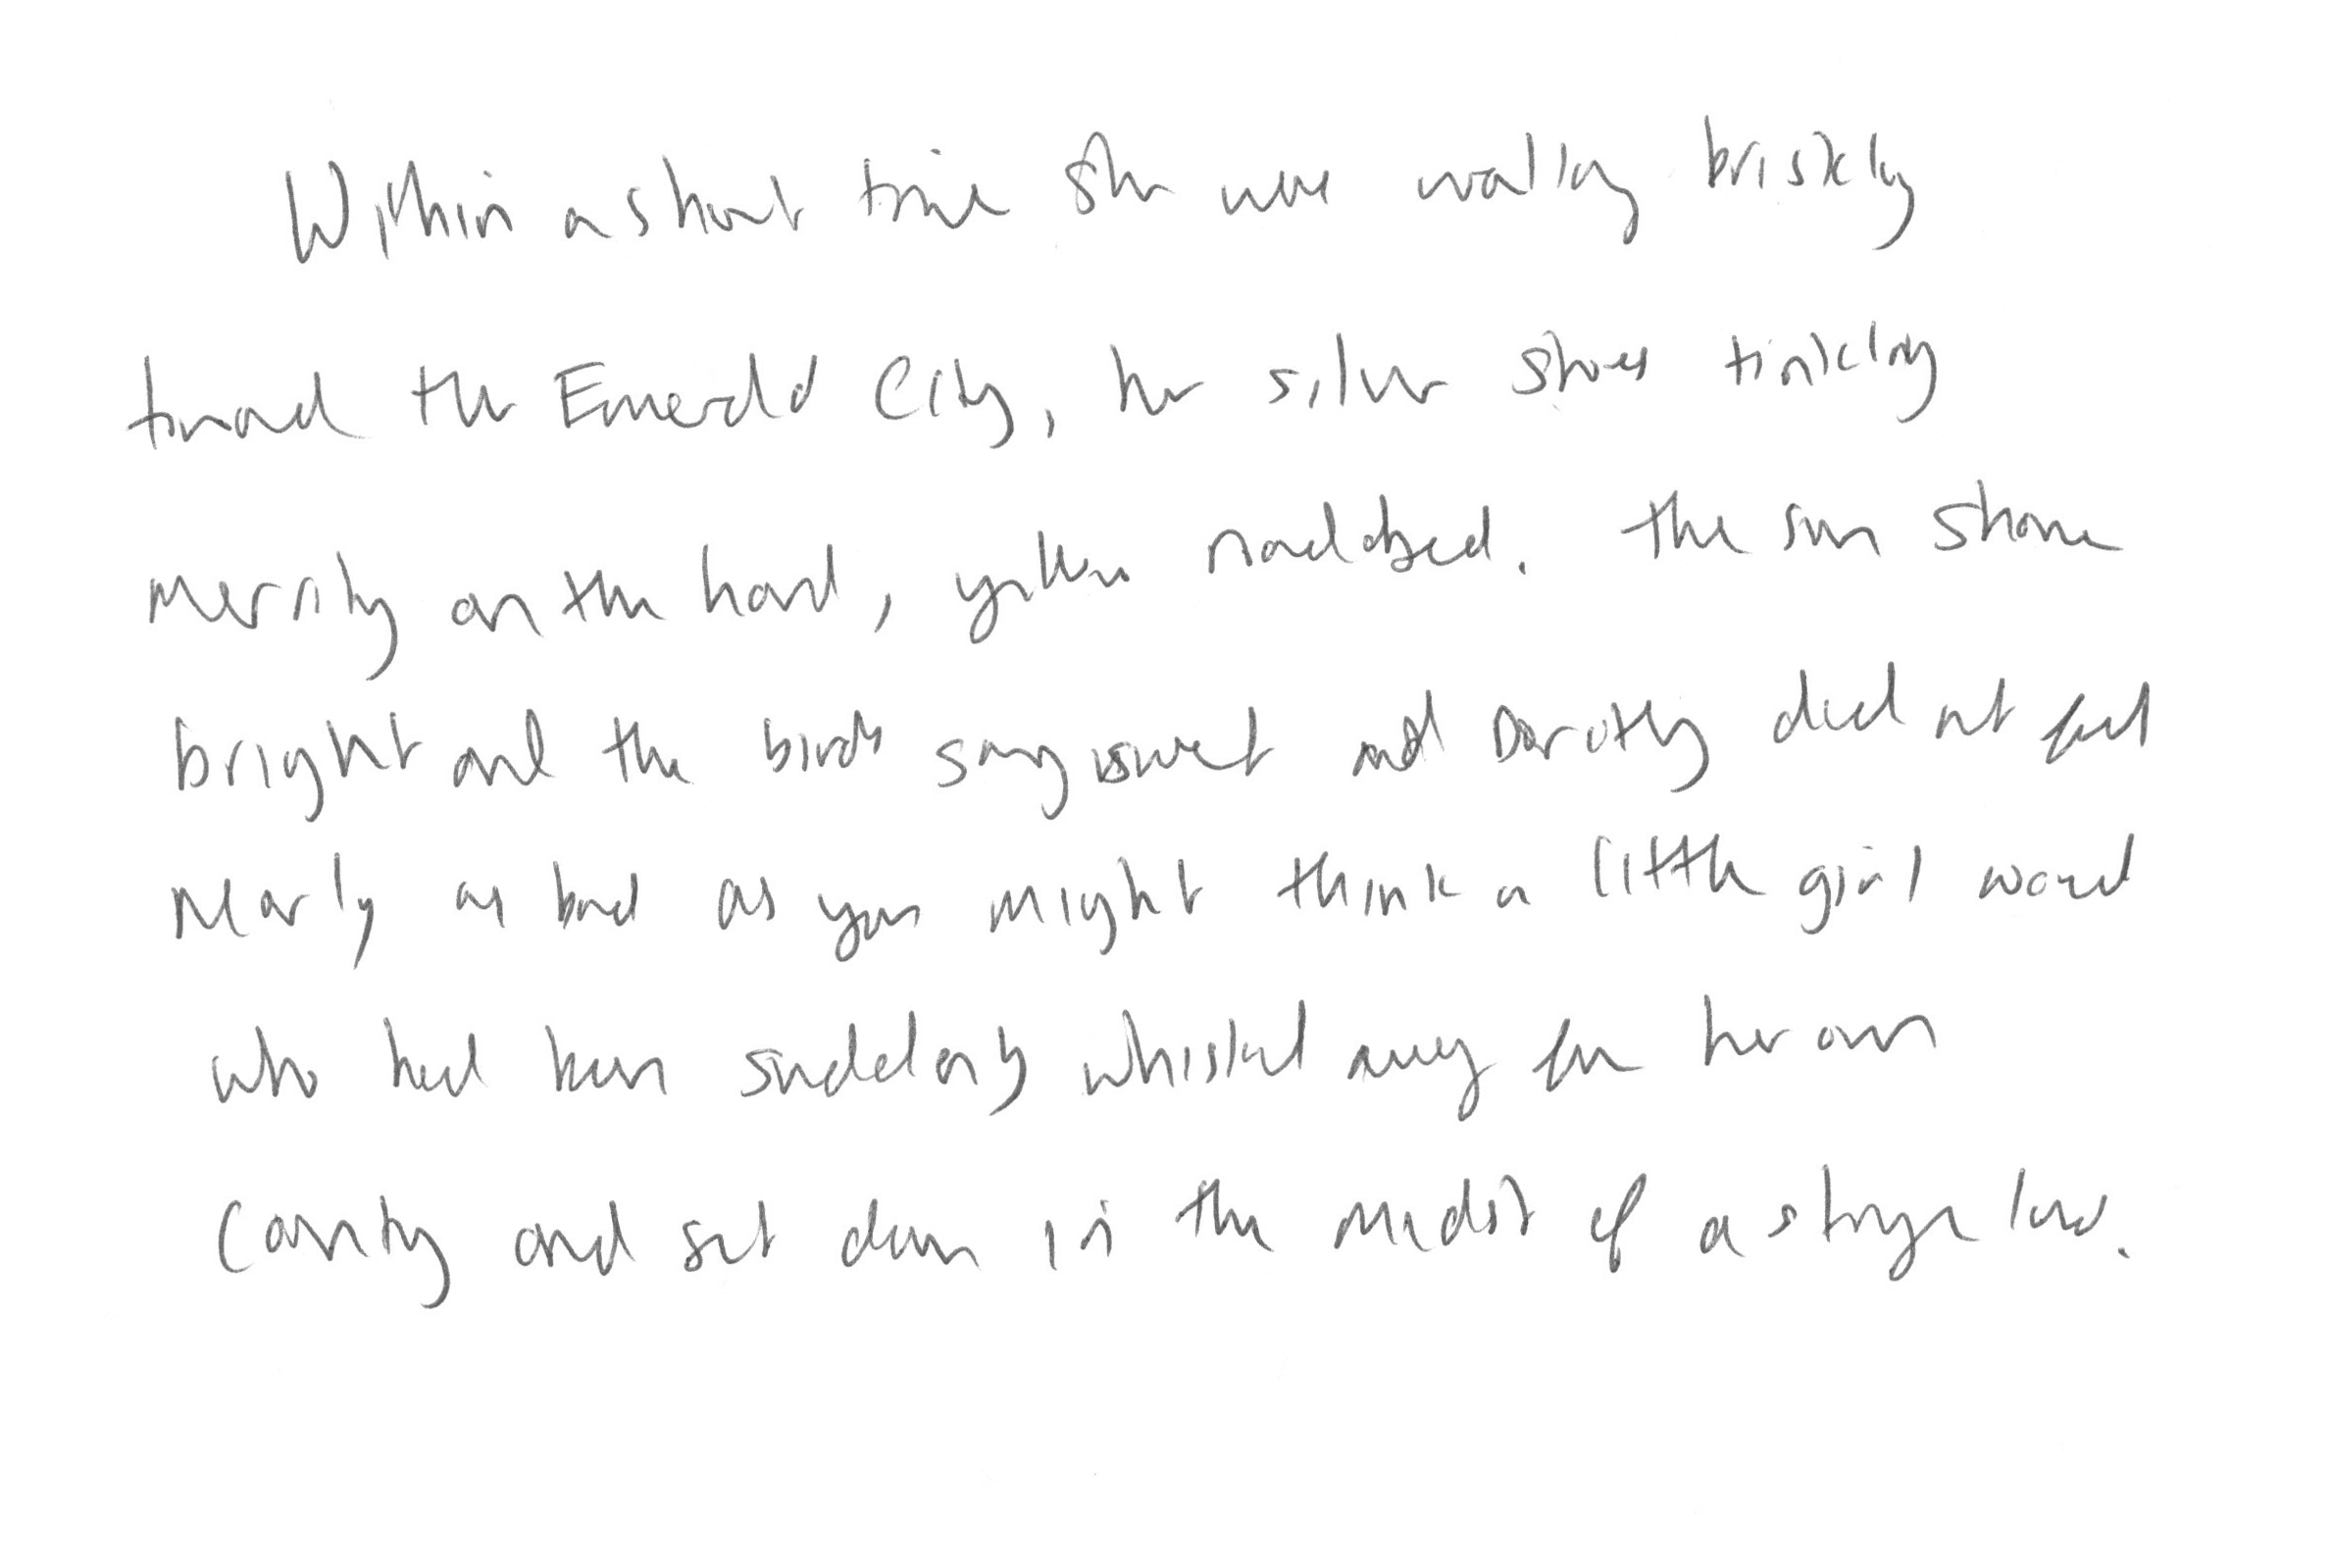 Within a short time she was walking briskly
toward the Emerald City, her silver shoes tinkling
merrily on the hard, yellow roadbed. The sun shone
bright and the birds sang sweet and Dorothy did not feel
nearly as bad as you might think a little girl would
who had been suddenly whisked away from her own
country and set down in the midst of a strange land.